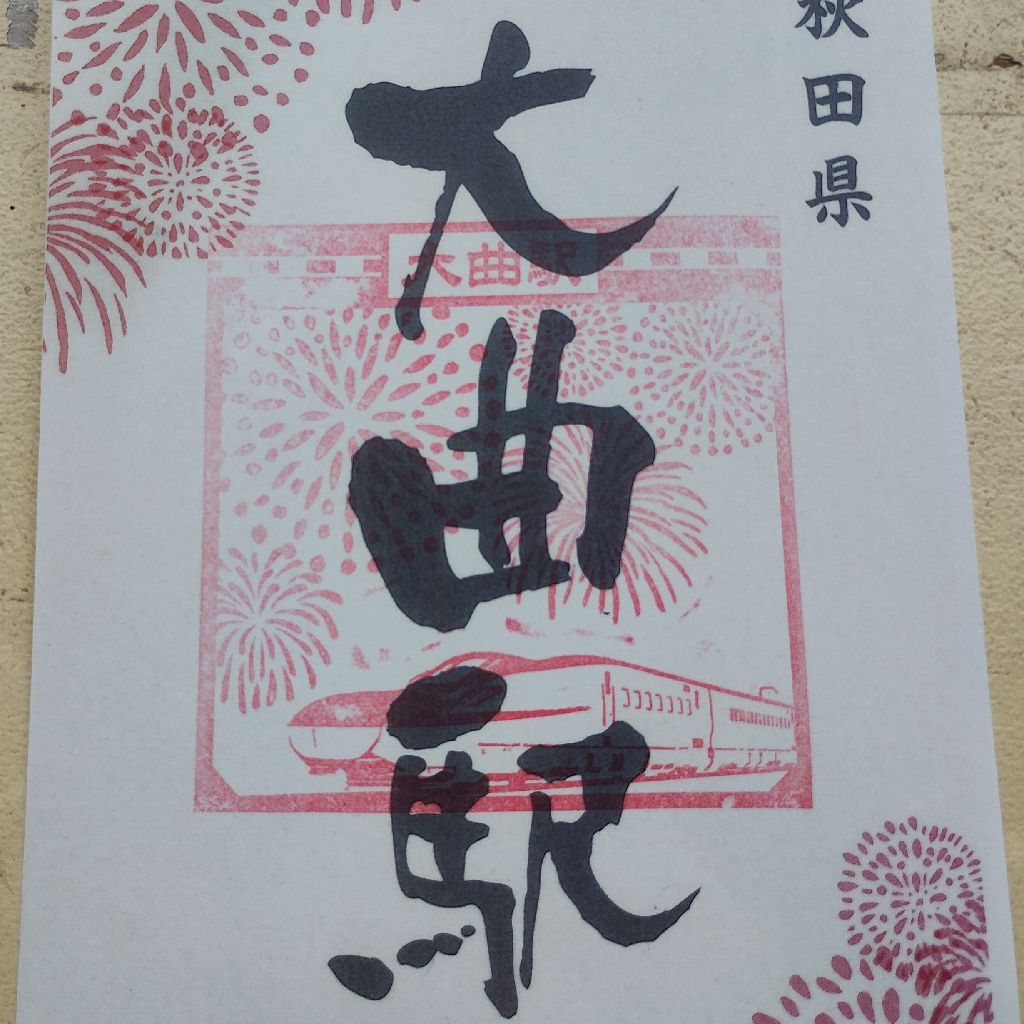 秋田県
大曲駅
大曲駅